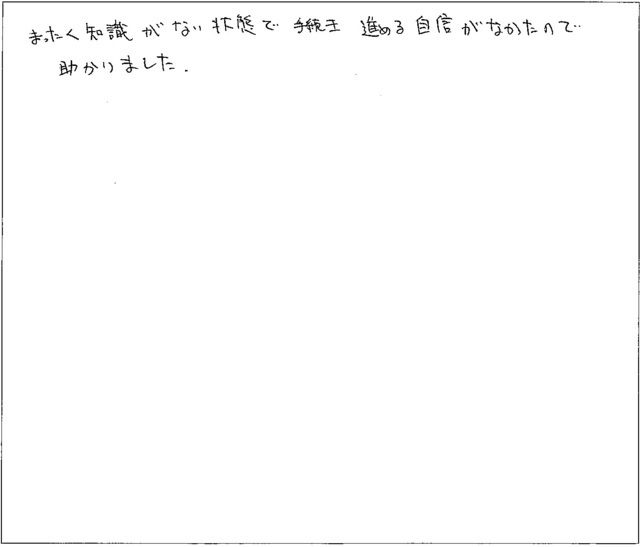 まったく知識がない状態で 手続を 進める自信がなかたので
助かりました.